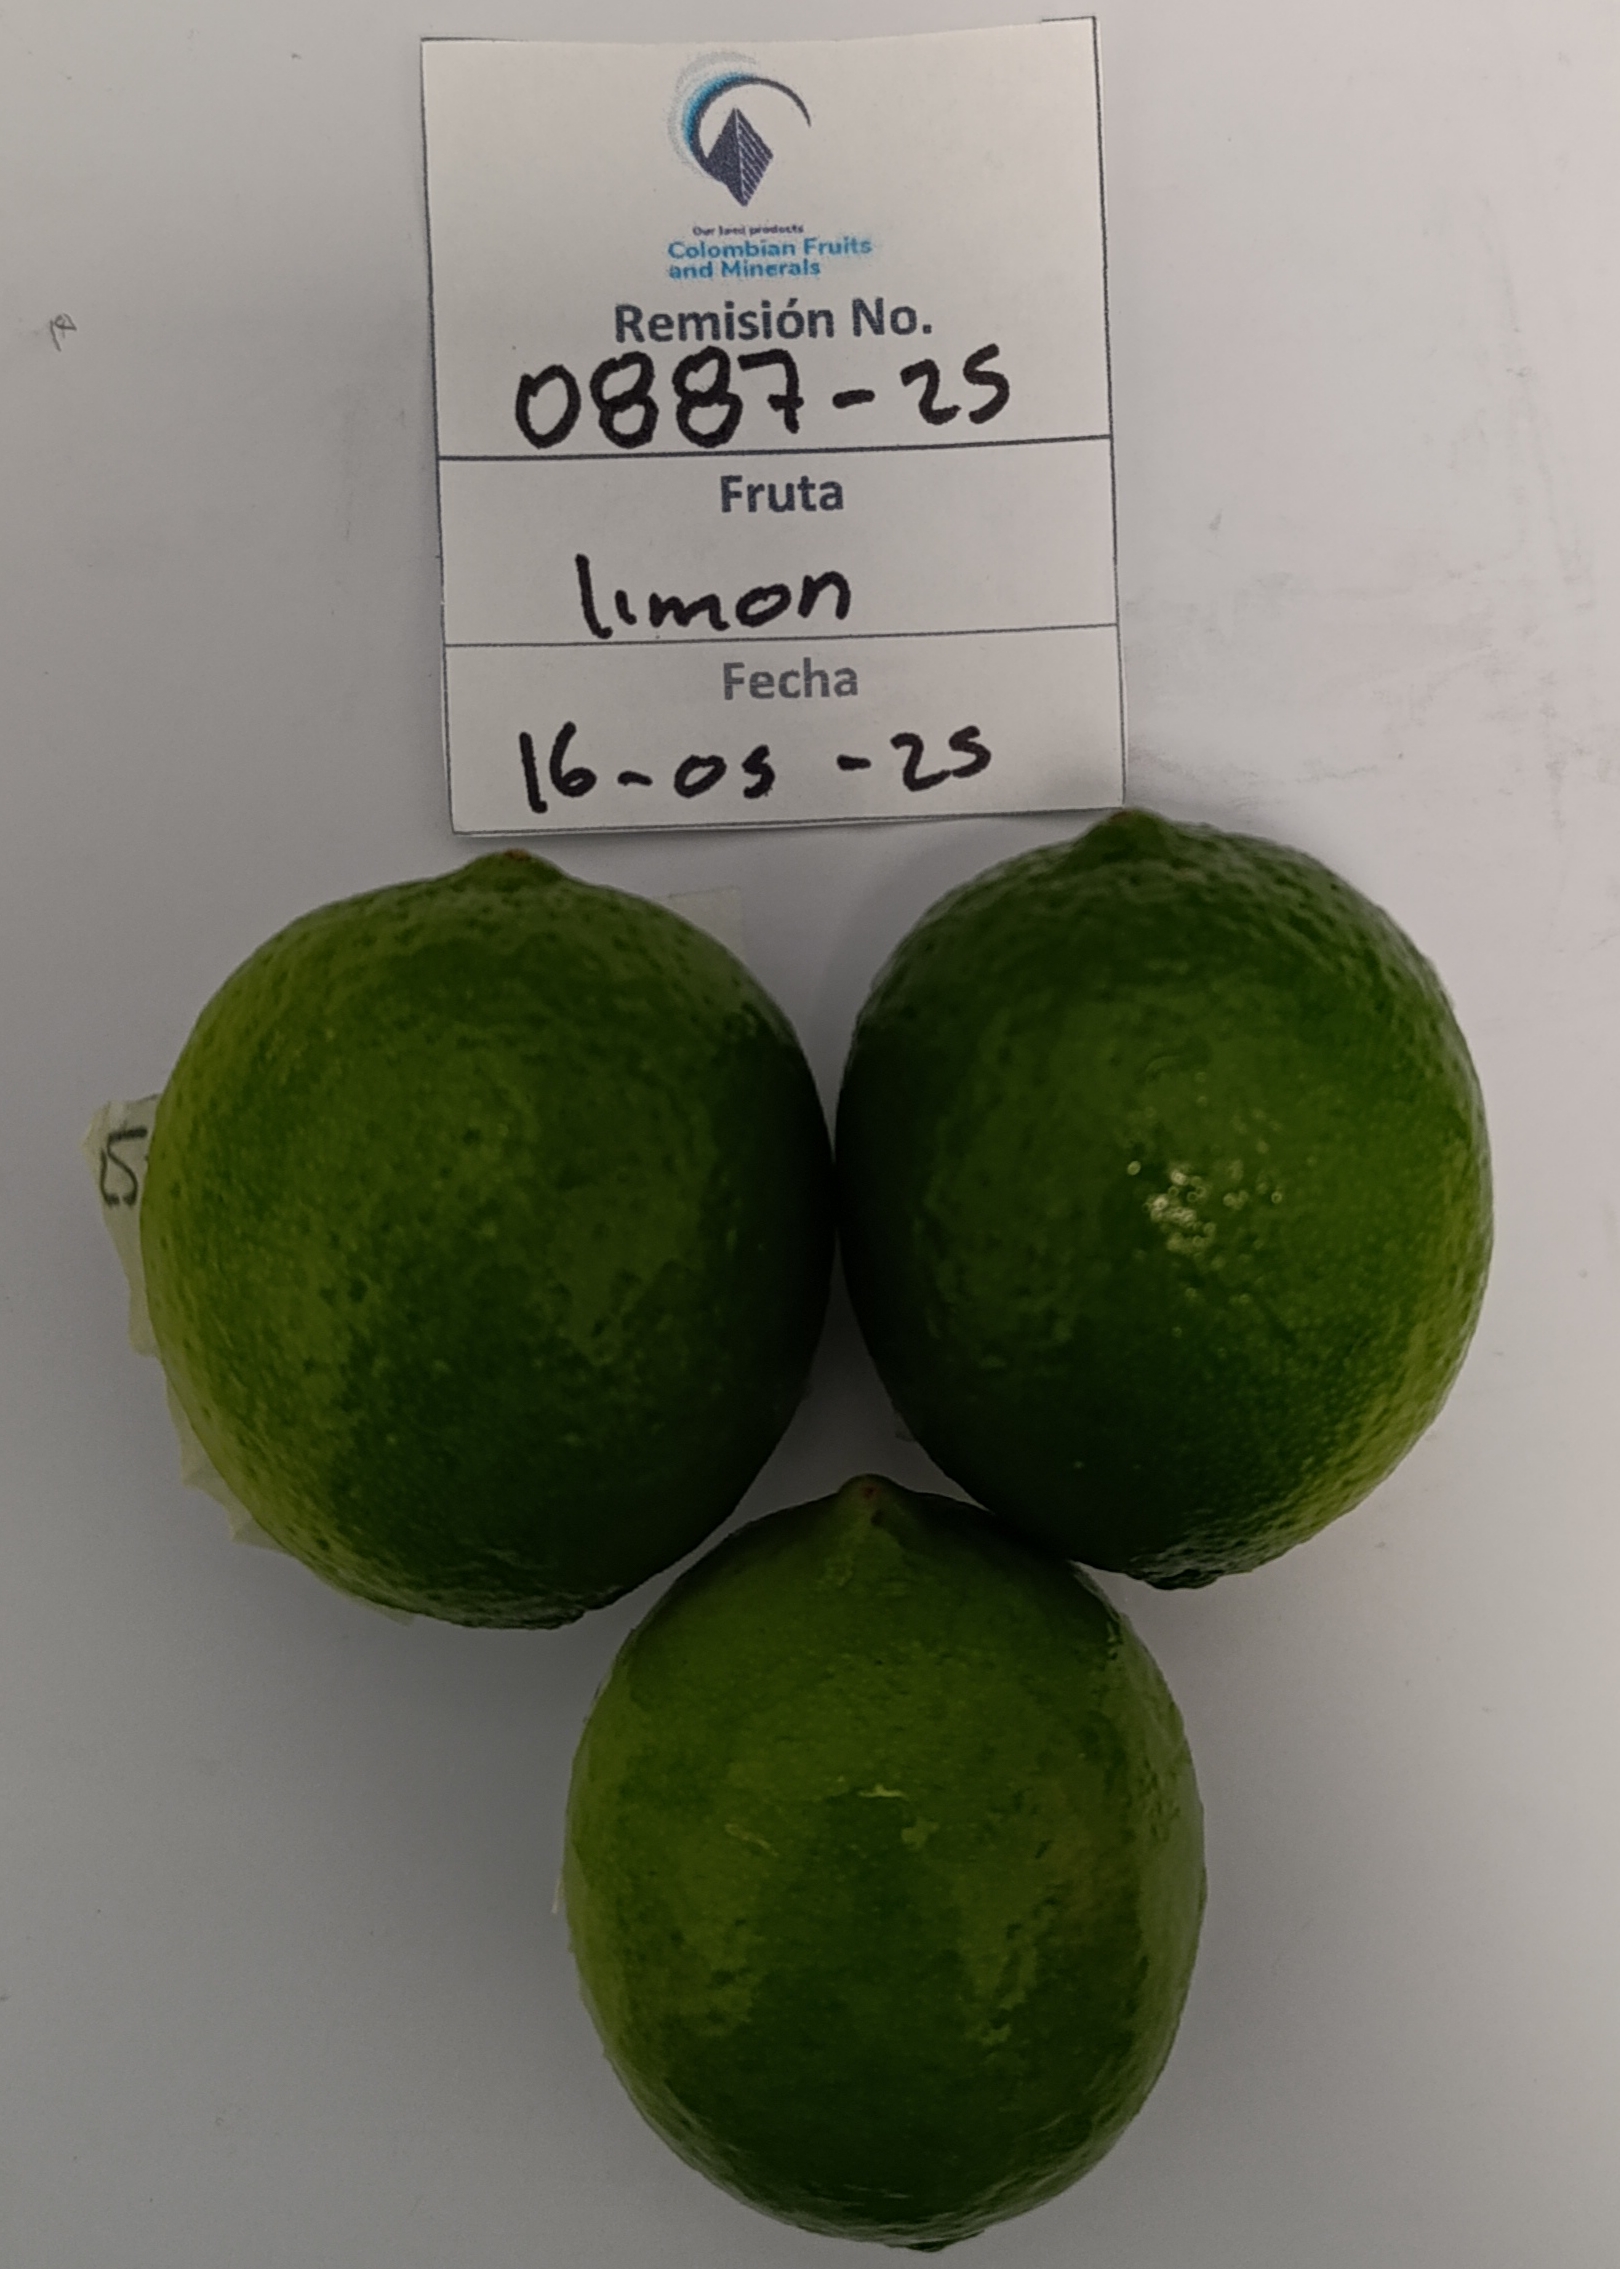 Our land products
Colombian Fruits
and Minerals
Remisión No.
0887-25
Fruta
limon
Fecha
16-05-25
5